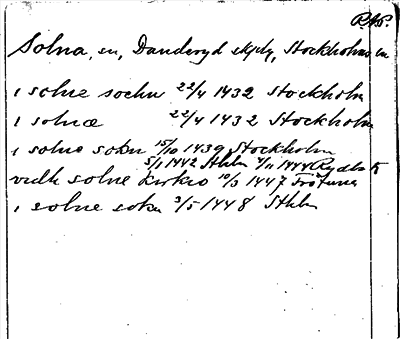 RAP.
Solna, sn, Danderyd skply, Stockholms ln
i solne sochn 22/4 1432 Stockholm
i solnæ 22/4 1432 Stockholm
i solne sokn 15/10 1439 Stockholm
5/1 1442 Sthlm 4/11 1444 Rydbok
vidh solne kirkio 10/3 1447 Frötuna
i solne sokn 3/5 1448 Sthlm